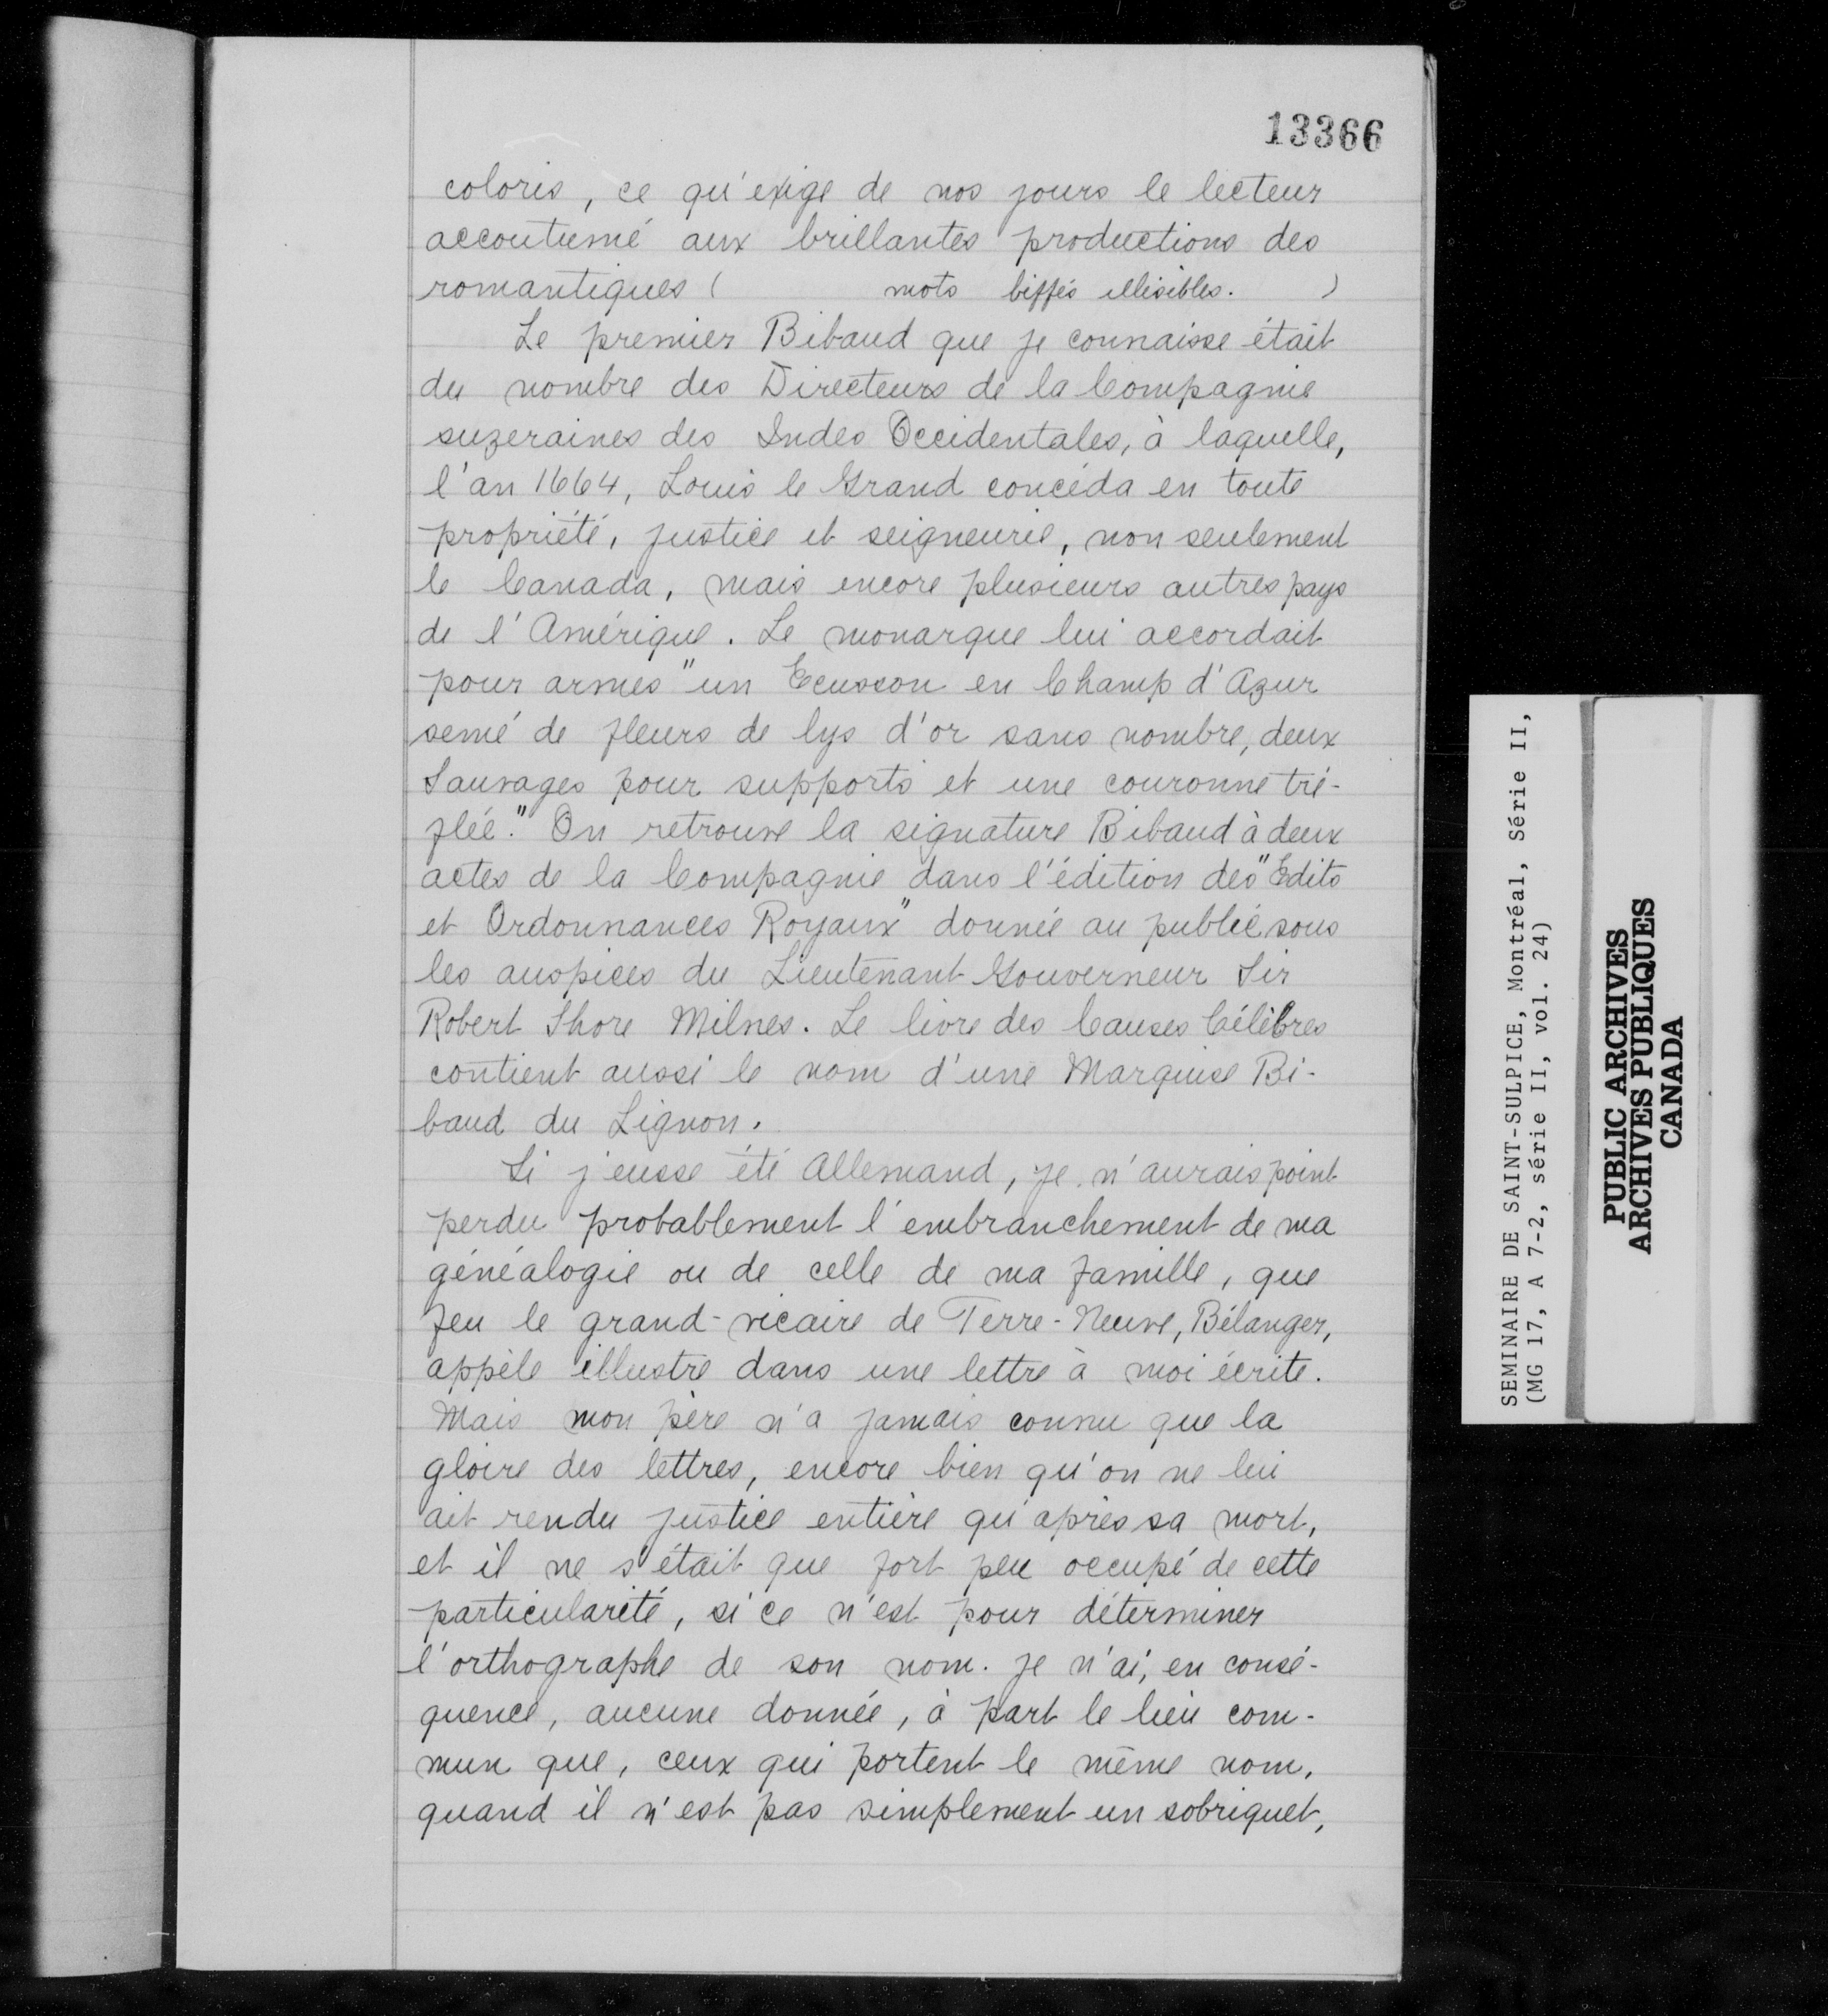 13366
coloris, ce qu'exige de nos jours le lecteur
accoutumé aux brillantes productions des
romantiques ( mots biffés illisibles. )
Le premier Bibaud que je connaisse était
du nombre des Directeurs de la Compagnie
suzeraines des Indes Occidentales, à laquelle,
l'an 1664, Louis le Grand concéda en toute
propriété, justice et seigneurie, non seulement
le Canada, mais encore plusieurs autres pays
de l'Amérique. Le monarque lui accordait
pour armes "un Ecusson en Champ d'Azur
semé de fleurs de lys d'or sans nombre, deux
Sauvages pour supports et une couronne tré-
flée." On retrouve la signature Bibaud à deux
actes de la Compagnie dans l'édition des "Edits
et Ordonnances Royaux" donnée au public sous
les auspices du Lieutenant Gouverneur Sir
Robert Shore Milnes. Le livre des Causes Célèbres
contient aussi le nom d'une Marquise Bi-
baud du Lignon.
Si j'eusse été Allemand, je n'aurais point
perdu probablement l'embranchement de ma
généalogie ou de celle de ma famille, que
feu le grand-vicaire de Terre-Neuve, Bélanger,
appèle illustre dans une lettre à moi écrite.
Mais mon père n'a jamais connu que la
gloire des lettres, encore bien qu'on ne lui
ait rendu justice entière qu'après sa mort,
et il ne s'était que fort peu occupé de cette
particularité, si ce n'est pour déterminer
l'orthographe de son nom. Je n'ai, en consé-
quence, aucune donnée, à part le lieu com-
mun que, ceux qui portent le même nom,
quand il n'est pas simplement un sobriquet,
SEMINAIRE DE SAINT-SULPICE, Montréal, Série II,
(MG 17, A 7-2, série II, vol. 24)
PUBLIC ARCHIVES
ARCHIVES PUBLIQUES
CANADA